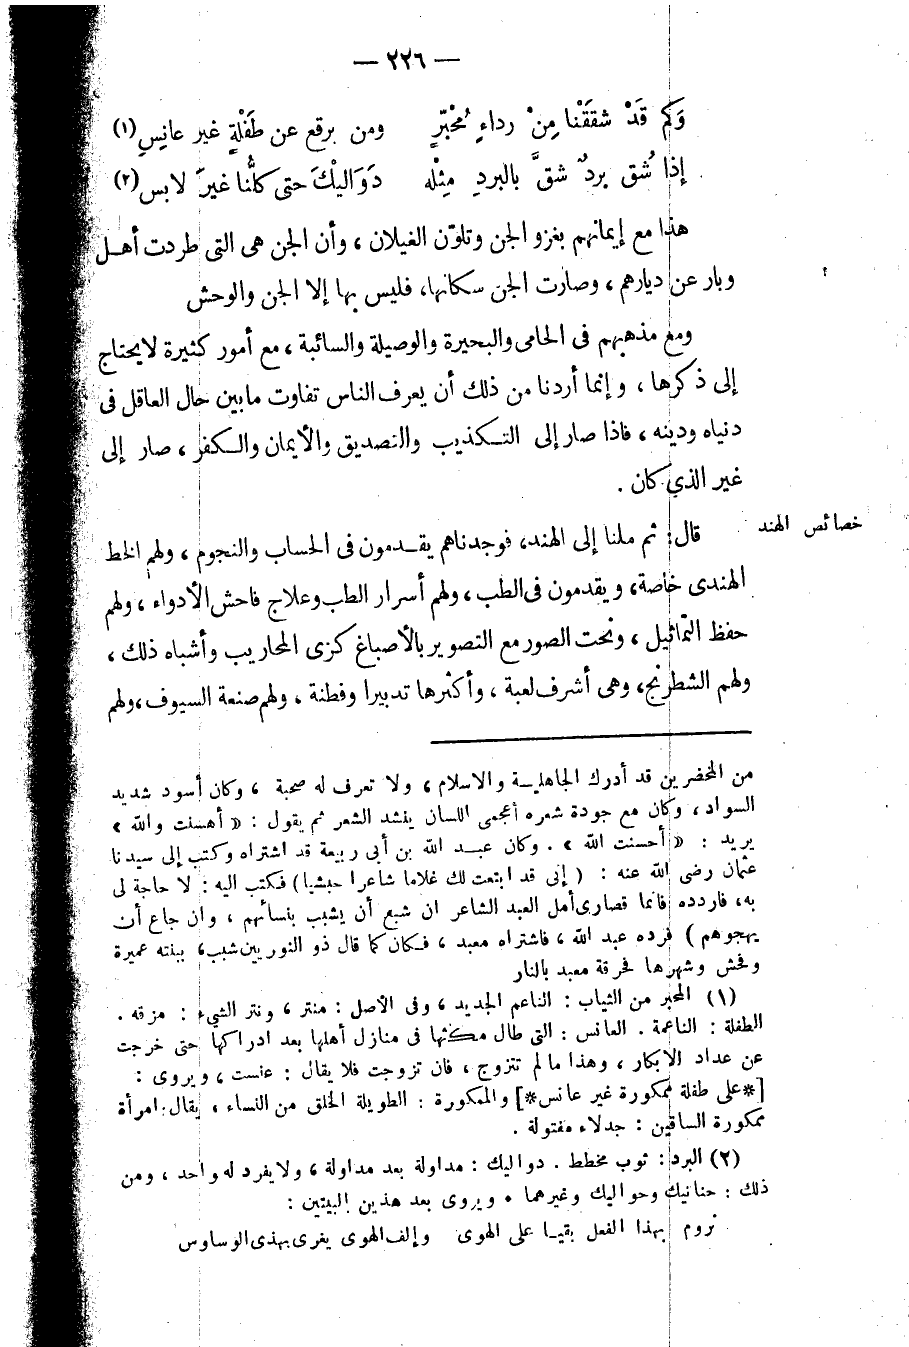 — ٢٢٦ —
وَكم قَدْ شققَقْنا مِنْ رداءٍ مُحْبّرٍ ومن برقع عن طَفْلةٍ غير عانِسِ (١)
إذا شُق بردٌ شقَّ بالبردِ مِثْله دَوَاليْكَ حتى كلُّنا غيرَ لابس (٢)
هذا مع إيمانهم بغزو الجن وتلوّن الغيلان ، وأن الجن هى التى طردت أهل
وبار عن ديارهم ، وصارت الجن سكانها، فليس بها إلا الجن والوحش
ومع مذهبهم فى الحامى والبحيرة والوصيلة والسائبة ، مع أمور كثيرة لايحتاج
إلى ذكرها ، و إنما أردنا من ذلك أن يعرف الناس تفاوت مابين حال العاقل فى
دنياه ودينه ، فاذا صار إلى التكذيب والتصديق والأيمان والكفر ، صار إلى
غير الذي كان .
خصائص الهند
قال: ثم ملنا إلى الهند، فوجدناهم يقدمون فى الحساب والنجوم ، ولهم الخط
الهندى خاصة، و يقدمون فى الطب ، ولهم أسرار الطب وعلاج فاحش الأدواء ، ولهم
حفظ التماثيل ، ونحت الصور مع التصوير بالأصباغ كزى المحاريب وأشباه ذلك ،
ولهم الشطرنج، وهى أشرف لعبة ، وأكثرها تدبيرا وفطنة ، ولهم صنعة السيوف ،ولهم
من المخضرين قد أدرك الجاهلية والاسلام ، ولا تعرف له صحبة ، وكان أسود شديد
السواد ، وكان مع جودة شعره أعجمى اللسان ينشد الشعر ثم يقول : « أهسنت والله »
يريد : « أحسنت الله » . وكان عبد الله بن أبى ربيعة قد اشتراه وكتب إلى سيدنا
عثمان رضى الله عنه : ( إنى قد ابتعت لك غلاما شاعرا حبشيا ) فكتب اليه : لا حاجة لى
به، فاردده فانما قصارى أمل العبد الشاعر ان شبع أن يشبب بنسائهم ، وان جاع أن
يهجوهم ) فرده عبد الله ، فاشتراه معبد ، فكان كما قال ذو النورين شبب ببنته عميرة
وفحش وشهرها فحرقة معبد بالنار
(١) المحبر من الثياب : الناعم الجديد ، وفى الأصل : منتر ، ونتر الشيء : مزقه .
الطفلة : الناعمة . العانس : التى طال مكثها فى منازل أهلها بعد ادراكها حتى خرجت
عن عداد الابكار ، وهذا مالم تتزوج ، فان تزوجت فلا يقال : عنست ، ويروى :
[*على طفلة ممكورة غير عانس*] والممكورة : الطويلة الخلق من النساء ، يقال: امرأة
ممكورة الساقين : جدلاء مفتولة .
(٢) البرد : ثوب مخطط . دواليك : مداولة بعد مداولة ، ولايفرد له واحد ، ومن
ذلك : حنانيك وحواليك وغيرهما . ويروى بعد هذين البيتين :
نروم بهذا الفعل بقيا على الهوى وإلف الهوى يغرى بهذى الوساوس